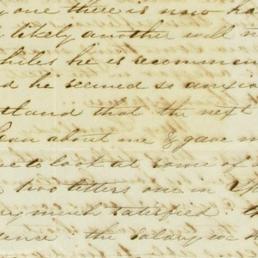 one there is now ha
likely another will n
whiles he is recommen
d he seemed so anxio
tland that the next
about me & gave m
to look at some of
two letters one in
very much satisfied. th
ence the salary